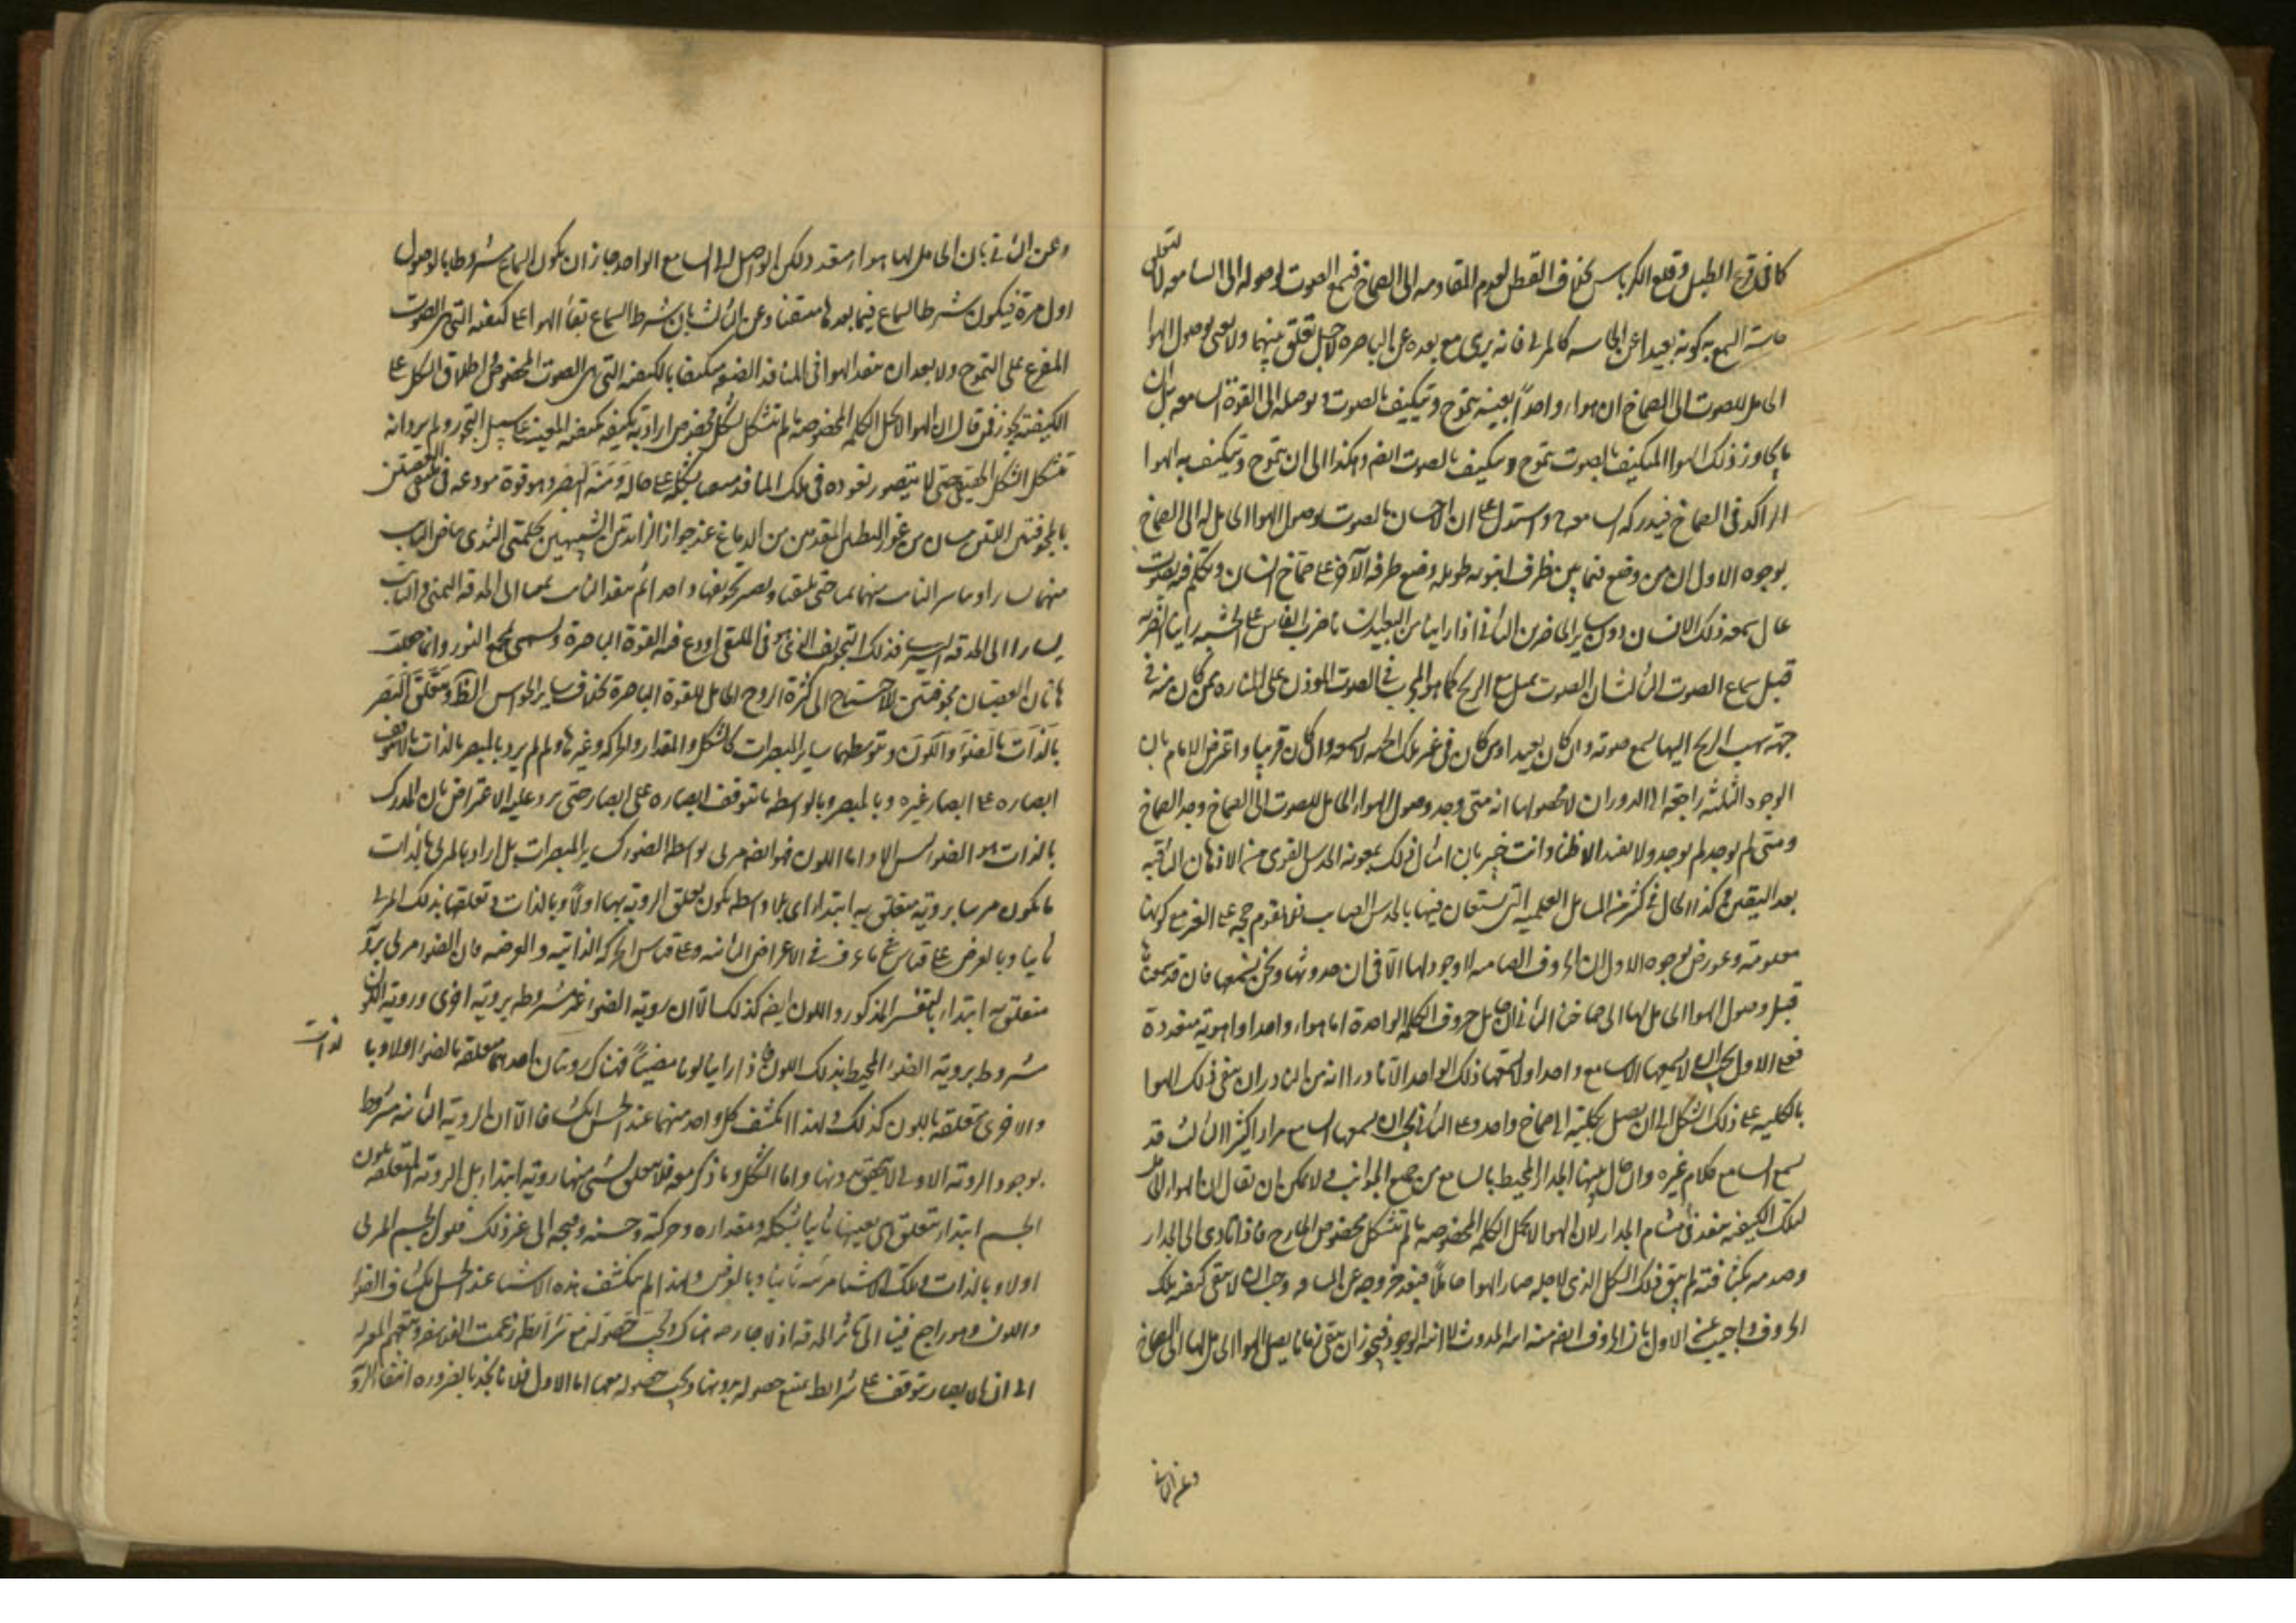 كما فى قرع الطبل وقلع الكرباس بخلاف القطن لعدم المقاومه الى الصماخ فيسمع الصوت لوصوله الى السامعه لا لتعلق
حاسة السمع به كونه بعيدا عن الحاسه كالمرئى فانه يرى مع بعده عن الباصره لاجل تعلق بينهما ولا يعنى بوصول الهوا
الحامل للصوت الى الصماخ ان هواء واحداً بعينه يتموج ويتكيف بالصوت ويوصله الى القوة السامعه بل ان
ما يجاور ذلك الهوا المتكيف بالصوت يتموج ويتكيف بالصوت ايضا وهكذا الى ان يتموج ويتكيف به الهوا
الراكد فى الصماخ فيدركه السامعه واستدل على ان الاحساس بالصوت لوصول الهوا الحامل له الى الصماخ
بوجوه الاول ان من وضع فمه بين طرف انبوبه طويله وضع طرفه الآخر على صماخ انسان وتكلم فيه بصوت
عال سمعه ذلك الانسان دون ساير الحاضرين الثانى اذا راينا من البعيد انسانا ضرب الفاس على الخشبه راينا الضربه
قبل سماع الصوت الثالث ان الصوت يميل مع الريح كما هو المجرب فى الصوت الموذن على المناره فمن كان منه فى
جهة يهب الريح اليها يسمع صوته وان كان بعيدا ومن كان فى غير تلك الجهه لا يسمعه وان كان قريبا واعترض الامام بان
الوجوه الثلثة راجعة الى الدوران لا محصول لها انه متى وجد وصول الهواء الحامل للصوت الى الصماخ وجد السماع
ومتى لم يوجد لم يوجد ولا يفيد الا ظنا وانت خبير بان امثال ذلك بمعونة الحدس القوى من الاذهان الثاقبه
يفيد اليقين وكذا الحال فى كثير من المسائل العلميه التى يستعان فيها بالحدس الصايب فلا تقوم حجه على الغير مع كونها
معلومة وعورض بوجوه الاول ان الحروف الصامته لا وجود لها الا فى ان حدوثها ونحن نسمعها فاذن قد سمعناها
قبل وصول الهوا الحامل لها الى صماخنا الثانى ان حامل حروف الكلمه الواحدة اما هواء واحد او اهوية متعددة
فعلى الاول يجب ان لا يسمعها الا سامع واحد او لا يسمعها ذلك الواحد الا نادرا اذ من النادر ان يبقى ذلك الهوا
بالكليه على ذلك الشكل الى ان يصل بكليته الى صماخ واحد وعلى الثانى يجب ان يسمعها السامع مرارا كثيرا الثالث قد
يسمع السامع كلام غيره وان حال بينهما الجدار المحيط بالسامع من جميع الجوانب ولا يمكن ان يقال ان الهواء الحامل
لتلك الكيفيه ينفذ فى مسام الجدار لان الهوا لا يحمل الكلمه المخصوصه ما لم يتشكل بشكل مخصوص فى الخارج فاذا تادى الى الجدار
وصدمه بكثافته لم يبق ذلك الشكل الذى لاجله صار الهوا حاملا فبعد خروجه عن المسام وجب ان لا يبقى كيفيه تلك
الحروف واجيب عن الاول بان الحروف الصامته انية الحدوث لا انية الوجود فيجوز ان يبقى زمانا يصل الهوا الحامل لها الى الصماخ
وعن الثانى
وعن الثانى بان الحامل لها هواء متعدد ولكن الواصل الى السامع الواحد جاز ان يكون السماع مشروطا بالوصول
اول مرة فيكون شرط السماع فيما بعدها منتفيا وعن الثالث بان شرط السماع بقاء الهوا على كيفيته التى هى الصوت
المفرع على التموج ولا يبعد ان ينفذ الهوا فى المنافذ الضيقه متكيفا بالكيفيه التى هى الصوت المخصوص واطلاق الشكل على
الكيفيته تجوز فمن قال ان الهوا لا يحمل الكلمه المخصوصه ما لم يتشكل بشكل مخصوص اراد به تكيفه بكيفيه المعينه على سبيل التجوز ولم يرد انه
يتشكل بالشكل الحقيقى حتى لا يتصور نفوذه فى تلك المنافذ بشكله على حاله ومنه البصر وهو قوة مودعه فى ملتقى العصبتين
المجوفتين اللتين تنبتان من غور البطنين المقدمين من الدماغ عند جواز الزائدتين الشبيهتين بحلمتى الثدى يتياسر النابت
منهما يمينا ويتيامن النابت منهما يسارا حتى يلتقيا ويصير تجويفهما واحدا ثم ينفذ النابت يمينا الى الحدقه اليمنى والنابت
يسارا الى الحدقه اليسرى فذلك التجويف الذى هو فى الملتقى اودع فيه القوة الباصرة ويسمى مجمع النور وانما جعلت
هاتان العصبتان مجوفتين للاحتياج الى كثرة الروح الحامل للقوة الباصرة بخلاف ساير الحواس الظاهرة ومتعلق البصر
بالذات بالضوء واللون وبتوسطهما ساير المبصرات كالشكل والمقدار والحركه وغيرها ولم يرد بالمبصر بالذات ما لا يتوقف
ابصاره على ابصار غيره وبالمبصر بالواسطه ما يتوقف ابصاره على ابصار غيره حتى يرد عليه الاعتراض بان المدرك
بالذات هو الضوء ليس الا واما اللون فهو ايضا مرئى بواسطه الضوء كساير المبصرات بل اراد بالمرئى بالذات
ما يكون مرئيا بروية متعلق به ابتداء اى بلا واسطه يكون تعلق الروية بها اولا وبالذات وتعلقها بذلك المرئى
ثانيا وبالعرض على قياس ما عرف فى الاعراض الثانيه وعلى قياس الحركه الذاتية والعرضيه فان الضوء مرئى بروية
متعلق به ابتداء بالتفسير المذكور واللون ايضا كذلك الا ان روية الضوء غير مشروطه بروية اخرى وروية اللون
مشروط بروية الضوء المحيط بذلك اللون فاذا راينا لونا مضيئا فهناك رويتان احدهما متعلقه بالضوء اولا وبا
لذات
والاخرى متعلقه باللون كذلك ولهذا انكشف كل واحد منهما عند الحس انكشافا الا ان الروية الثانيه مشروط
بوجود الروية الاولى لا تتحقق بدونها واما الشكل وما ذكر معه فلا يتعلق بشئ منها روية ابتداء بل الروية المتعلقه بلون
الجسم ابتداء متعلق هى بعينها ثانيا بشكله ومقداره وحركته وحسنه وقبحه الى غير ذلك فلون الجسم المرئى
اولا وبالذات وتلك الاشيا مرئيه ثانيا وبالعرض ولهذا لم ينكشف هذه الاشيا عند الحس انكشاف الضوء
واللون وهو راجع فينا الى تاثر الحدقه اذ لا جارحه هناك ويجب حصوله مع شرائطه زعمت الفلاسفه وتبعهم المعتزله
الى ان الابصار يتوقف على شرائط يمتنع حصوله بدونها ويجب حصوله معها اما الاول فلانا نجد بالضروره انتفاء الروية